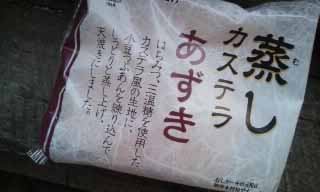 蒸し
む
カステラ
あずき
はちみつ、三温糖を使用した
カステラ風の生地に、
小豆つぶあんを練り込んで、
しっとりと蒸し上げ、
天焼きにしました。